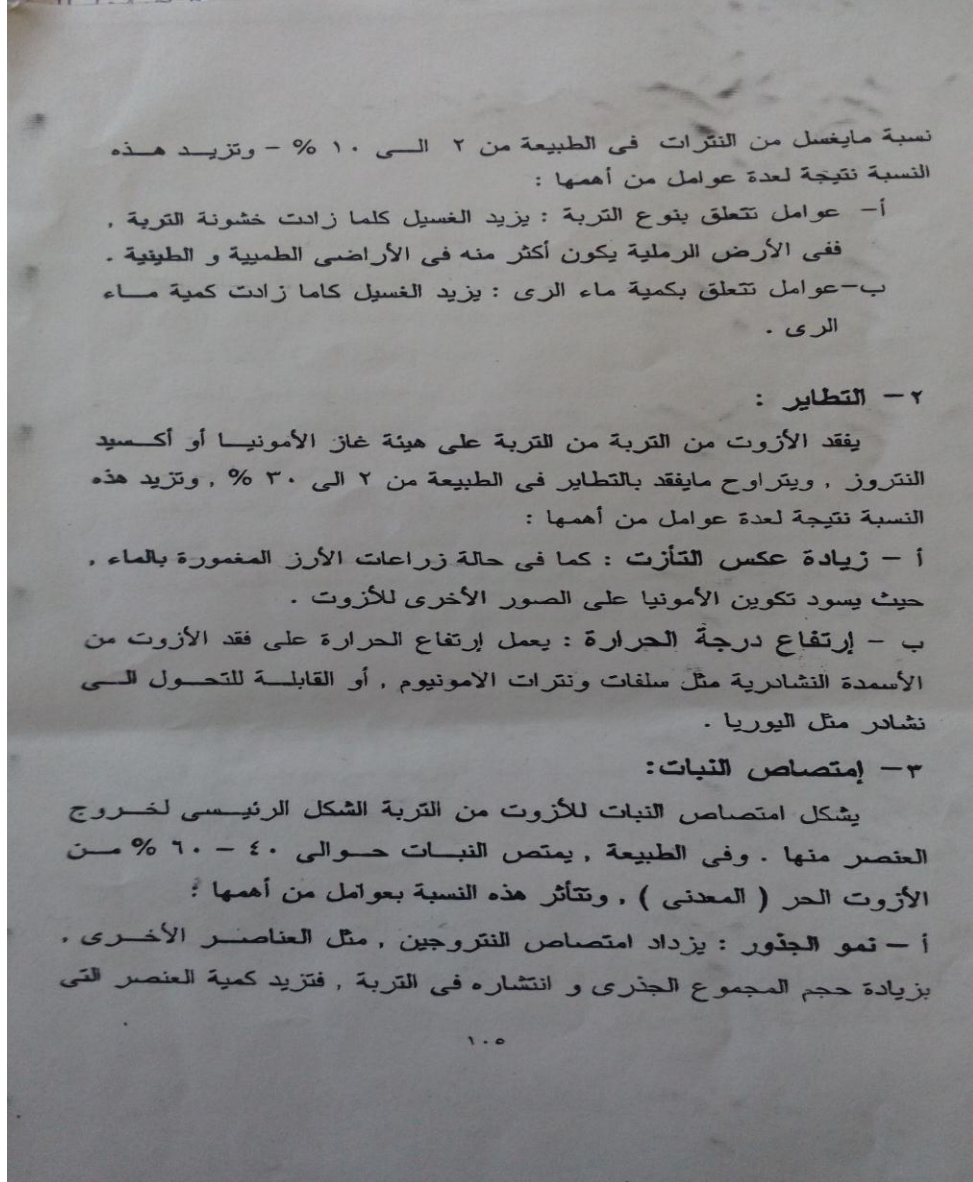 نسبة مايغسل من النترات فى الطبيعة من ٢ الـــى ١٠ % - وتزيــد هــذه
النسبة نتيجة لعدة عوامل من أهمها :
أ- عوامل تتعلق بنوع التربة : يزيد الغسيل كلما زادت خشونة التربة ,
ففى الأرض الرملية يكون أكثر منه فى الأراضى الطميية و الطينية .
ب-عوامل تتعلق بكمية ماء الرى : يزيد الغسيل كاما زادت كمية مــاء
الرى .
٢ - التطاير :
يفقد الأزوت من التربة من التربة على هيئة غاز الأمونيــا أو أكــسيد
النتروز , ويتراوح مايفقد بالتطاير فى الطبيعة من ٢ الى ٣٠ % , وتزيد هذه
النسبة نتيجة لعدة عوامل من أهمها :
أ - زيادة عكس التأزت : كما فى حالة زراعات الأرز المغمورة بالماء ,
حيث يسود تكوين الأمونيا على الصور الأخرى للأزوت .
ب - إرتفاع درجة الحرارة : يعمل إرتفاع الحرارة على فقد الأزوت من
الأسمدة النشادرية مثل سلفات ونترات الامونيوم , أو القابلــة للتحــول الــى
نشادر مثل اليوريا .
٣- إمتصاص النبات:
يشكل امتصاص النبات للأزوت من التربة الشكل الرئيــسى لخــروج
العنصر منها . وفى الطبيعة , يمتص النبــات حــوالى ٤٠ - ٦٠ % مــن
الأزوت الحر ( المعدنى ) , وتتأثر هذه النسبة بعوامل من أهمها :
أ - نمو الجذور : يزداد امتصاص النتروجين , مثل العناصــر الأخــرى ,
بزيادة حجم المجموع الجذرى و انتشاره فى التربة , فتزيد كمية العنصر التى
١٠٥